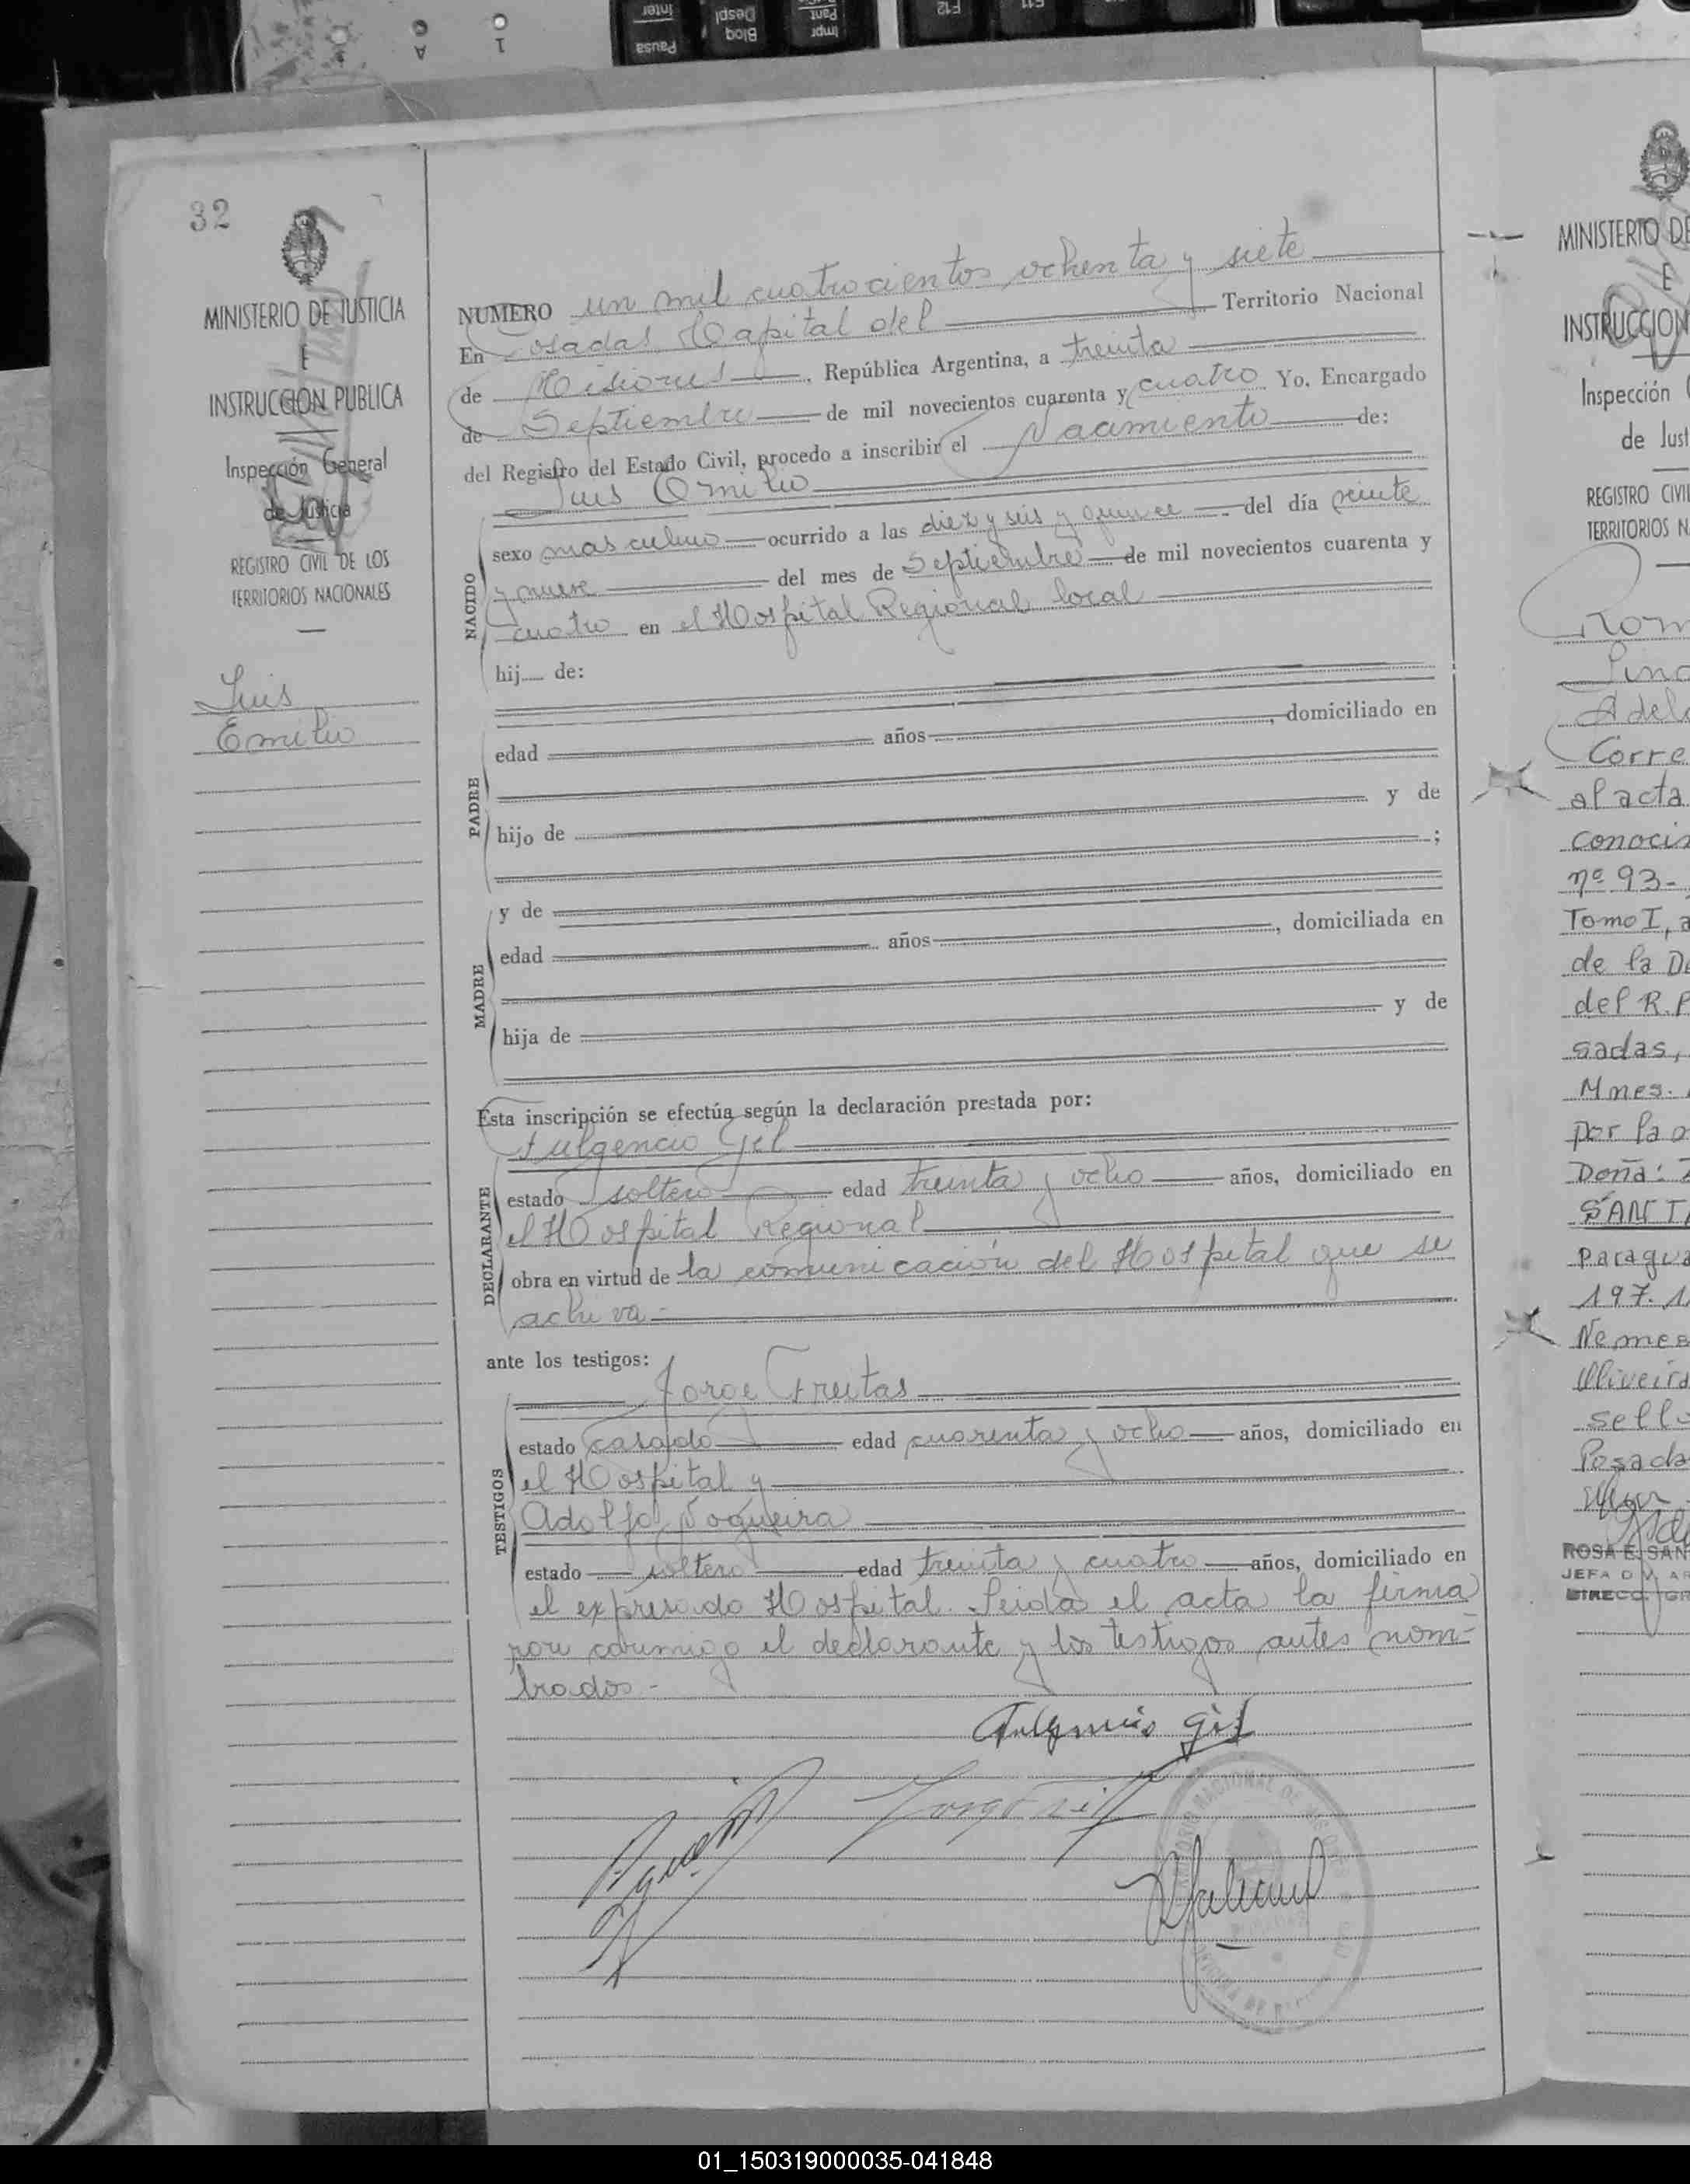 32
MINISTERIO DE JUSTICIA
E
INSTRUCCION PUBLICA
Inspección General
de Justicia
REGISTRO CIVIL DE LOS
TERRITORIOS NACIONALES
Luis
Emilio
NUMERO un mil cuatrocientos ochenta y siete
En Posadas Capital del Territorio Nacional
de Misiones, República Argentina, a treinta
de Septiembre de mil novecientos cuarenta y cuatro Yo, Encargado
del Registro del Estado Civil, procedo a inscribir el Nacimiento de:
Luis Emilio
sexo masculino ocurrido a las diez y seis y quince del día veinte
y nueve del mes de Septiembre de mil novecientos cuarenta y
cuatro en el Hospital Regional local
hij de:
NACIDO
edad años, domiciliado en
hijo de y de
;
PADRE
y de
edad años, domiciliada en
hija de y de
MADRE
Esta inscripción se efectúa según la declaración prestada por:
Fulgencio Gil
estado soltero edad treinta y ocho años, domiciliado en
el Hospital Regional
obra en virtud de la comunicación del Hospital que se
archiva.-
DECLARANTE
ante los testigos:
Jorge Freitas
estado casado edad cuarenta y ocho años, domiciliado en
el Hospital y
Adolfo Nogueira
estado soltero edad treinta y cuatro años, domiciliado en
el expresado Hospital. Leída el acta la firma
ron conmigo el declarante y los testigos antes nom-
brados.-
TESTIGOS
Fulgencio Gil
MINISTERIO DE
E
INSTRUCCION
Inspección
de Just
REGISTRO CIVI
TERRITORIOS N
Rom
Lino
Adela
Corre
al acta
conocim
nº 93-
Tomo I, a
de la De
del R.P
sadas,
Mnes.
por la
Doña:
SANTA
Paragua
197.
Nemes
Oliveira
sello
Posada
ROSA E. SAN
JEFA DIV. AR
DIRECC. GR
Pausa
Inter
Bloq
Despl
Impr
Pant
F12
F11
1
A
01_150319000035-041848